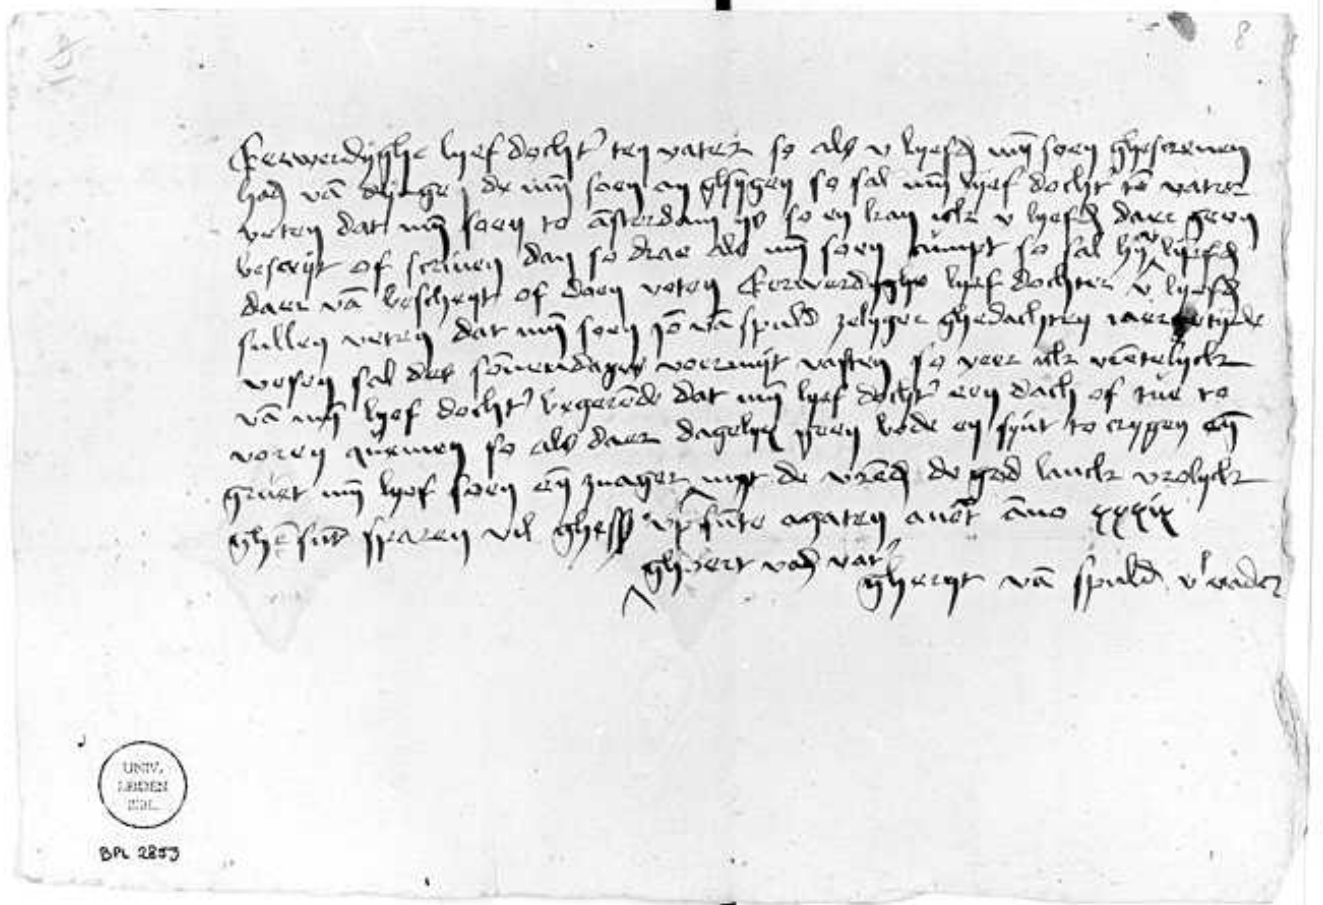 8
Eerwerdyghe lyef docht' ten vater so als v lyefd mÿ soen ghescreuen
had vā dynge de mÿ soen an ghÿgen so sal mÿ lyef docht' tē vater
veten dat mÿ soen to āsterdam ys so en kan ick v lyefd daer geen
bescryt of scriuen dan so drae als mÿ soen cumpt so sal hy v lyefd
daer vā bescheyt of doen veten Eerwerdyghe lyef dochter v lyefd
sullen veten dat mÿ soen Jō vā spuld zelyger ghedachten iaer tyde
vesen sal des sōnendages voer myt vasten so veer ick vrētelyck
vā mÿ lyef docht' begerēde dat mÿ lyef docht' een dach of tue to
voren quemen so als daer dagelyx geen bode en synt to crygen eñ
gruet mÿ lyef soen eñ zuager myt de vrēd de god lanck vrolyck
ghesūt sparen vil ghescr vp sūte agaten auēt āno xxxix
 gheryt vā spuld v vader
UNIV.
LEIDEN
BIBL.
BPL 2853